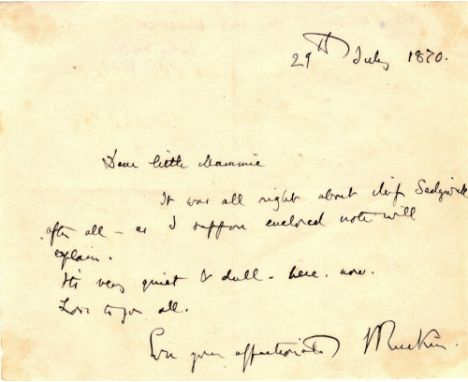 29th July 1870.
Dear little Mammie
It was all right about Miss Sedgwick
after all - as I suppose enclosed note will
explain.
It's very quiet & dull - here. now.
Love to you all.
Ever your affectionate JRuskin